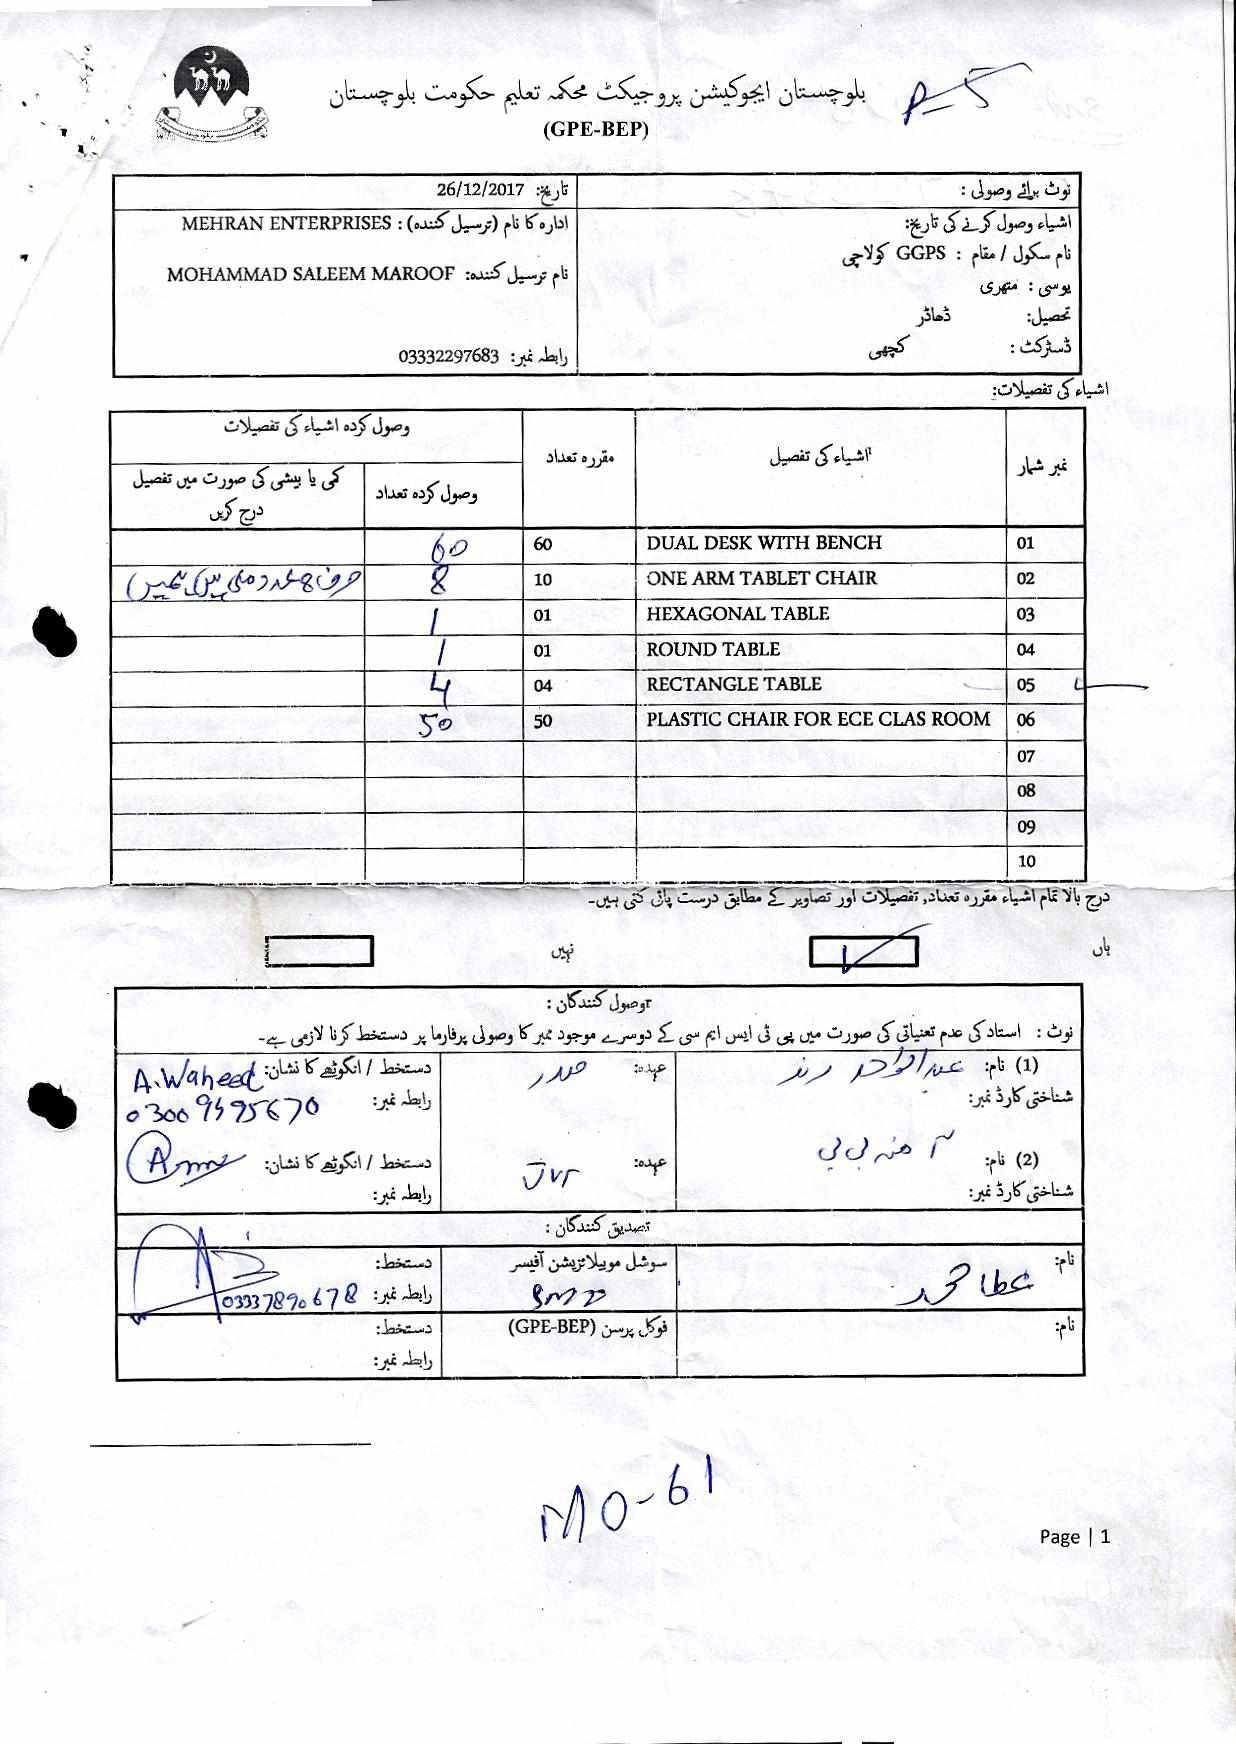 بلوچستان ایجوکیشن پروجیکٹ محکمہ تعلیم حکومت بلوچستان
(GPE-BEP)
نوٹ برائے وصولی :
تاریخ: 26/12/2017
اشیاء وصول کرنے کی تاریخ:
ادارہ کا نام (ترسیل کنندہ) : MEHRAN ENTERPRISES
نام سکول / مقام : GGPS کولاچی
نام ترسیل کنندہ: MOHAMMAD SALEEM MAROOF
یوسی : مٹھری
تحصیل: ڈھاڈر
ڈسٹرکٹ : کچھی
رابطہ نمبر: 03332297683
اشیاء کی تفصیلات:
نمبر شمار اشیاء کی تفصیل مقررہ تعداد وصول کردہ اشیاء کی تفصیلات
وصول کردہ تعداد کمی یا بیشی کی صورت میں تفصیل درج کریں
01 DUAL DESK WITH BENCH 60 60
02 ONE ARM TABLET CHAIR 10 8
03 HEXAGONAL TABLE 01 1
04 ROUND TABLE 01 1
05 RECTANGLE TABLE 04 4
06 PLASTIC CHAIR FOR ECE CLAS ROOM 50 50
07
08
09
10
درج بالا تمام اشیاء مقررہ تعداد, تفصیلات اور تصاویر کے مطابق درست پائی گئی ہیں۔
ہاں نہیں
وصول کنندگان :
نوٹ : استاد کی عدم تعنیاتی کی صورت میں پی ٹی ایس ایم سی کے دوسرے موجود ممبر کا وصولی پرفارما پر دستخط کرنا لازمی ہے۔
(1) نام: عبدالواحد رند عہدہ: صدر دستخط / انگوٹھے کا نشان: A.Waheed
شناختی کارڈ نمبر: رابطہ نمبر:
(2) نام: آمنہ بی بی عہدہ: JVT دستخط / انگوٹھے کا نشان:
شناختی کارڈ نمبر: رابطہ نمبر:
تصدیق کنندگان :
نام: عطا محمد سوشل موبیلائزیشن آفیسر دستخط:
رابطہ نمبر: 03337890678
نام: فوکل پرسن (GPE-BEP) دستخط:
رابطہ نمبر:
MO-61
Page | 1